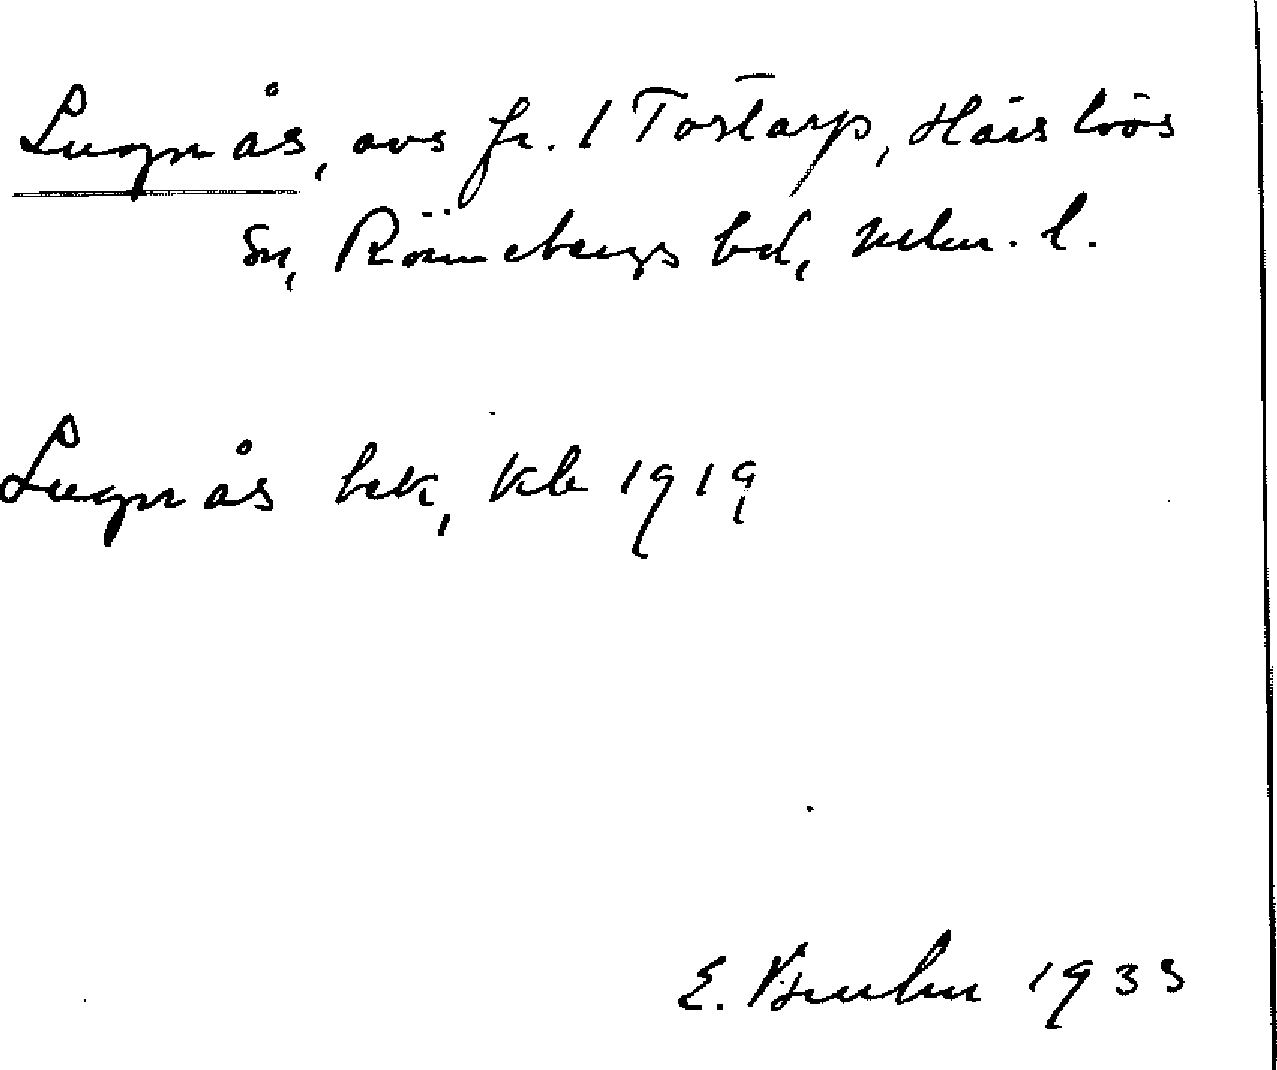 Lugnås, avs fr. 1 Tostarp, Halslövs
sn, Rönnebergs hd, Mlm. l.
Lugnås lhk, kb 1919
E. 1933